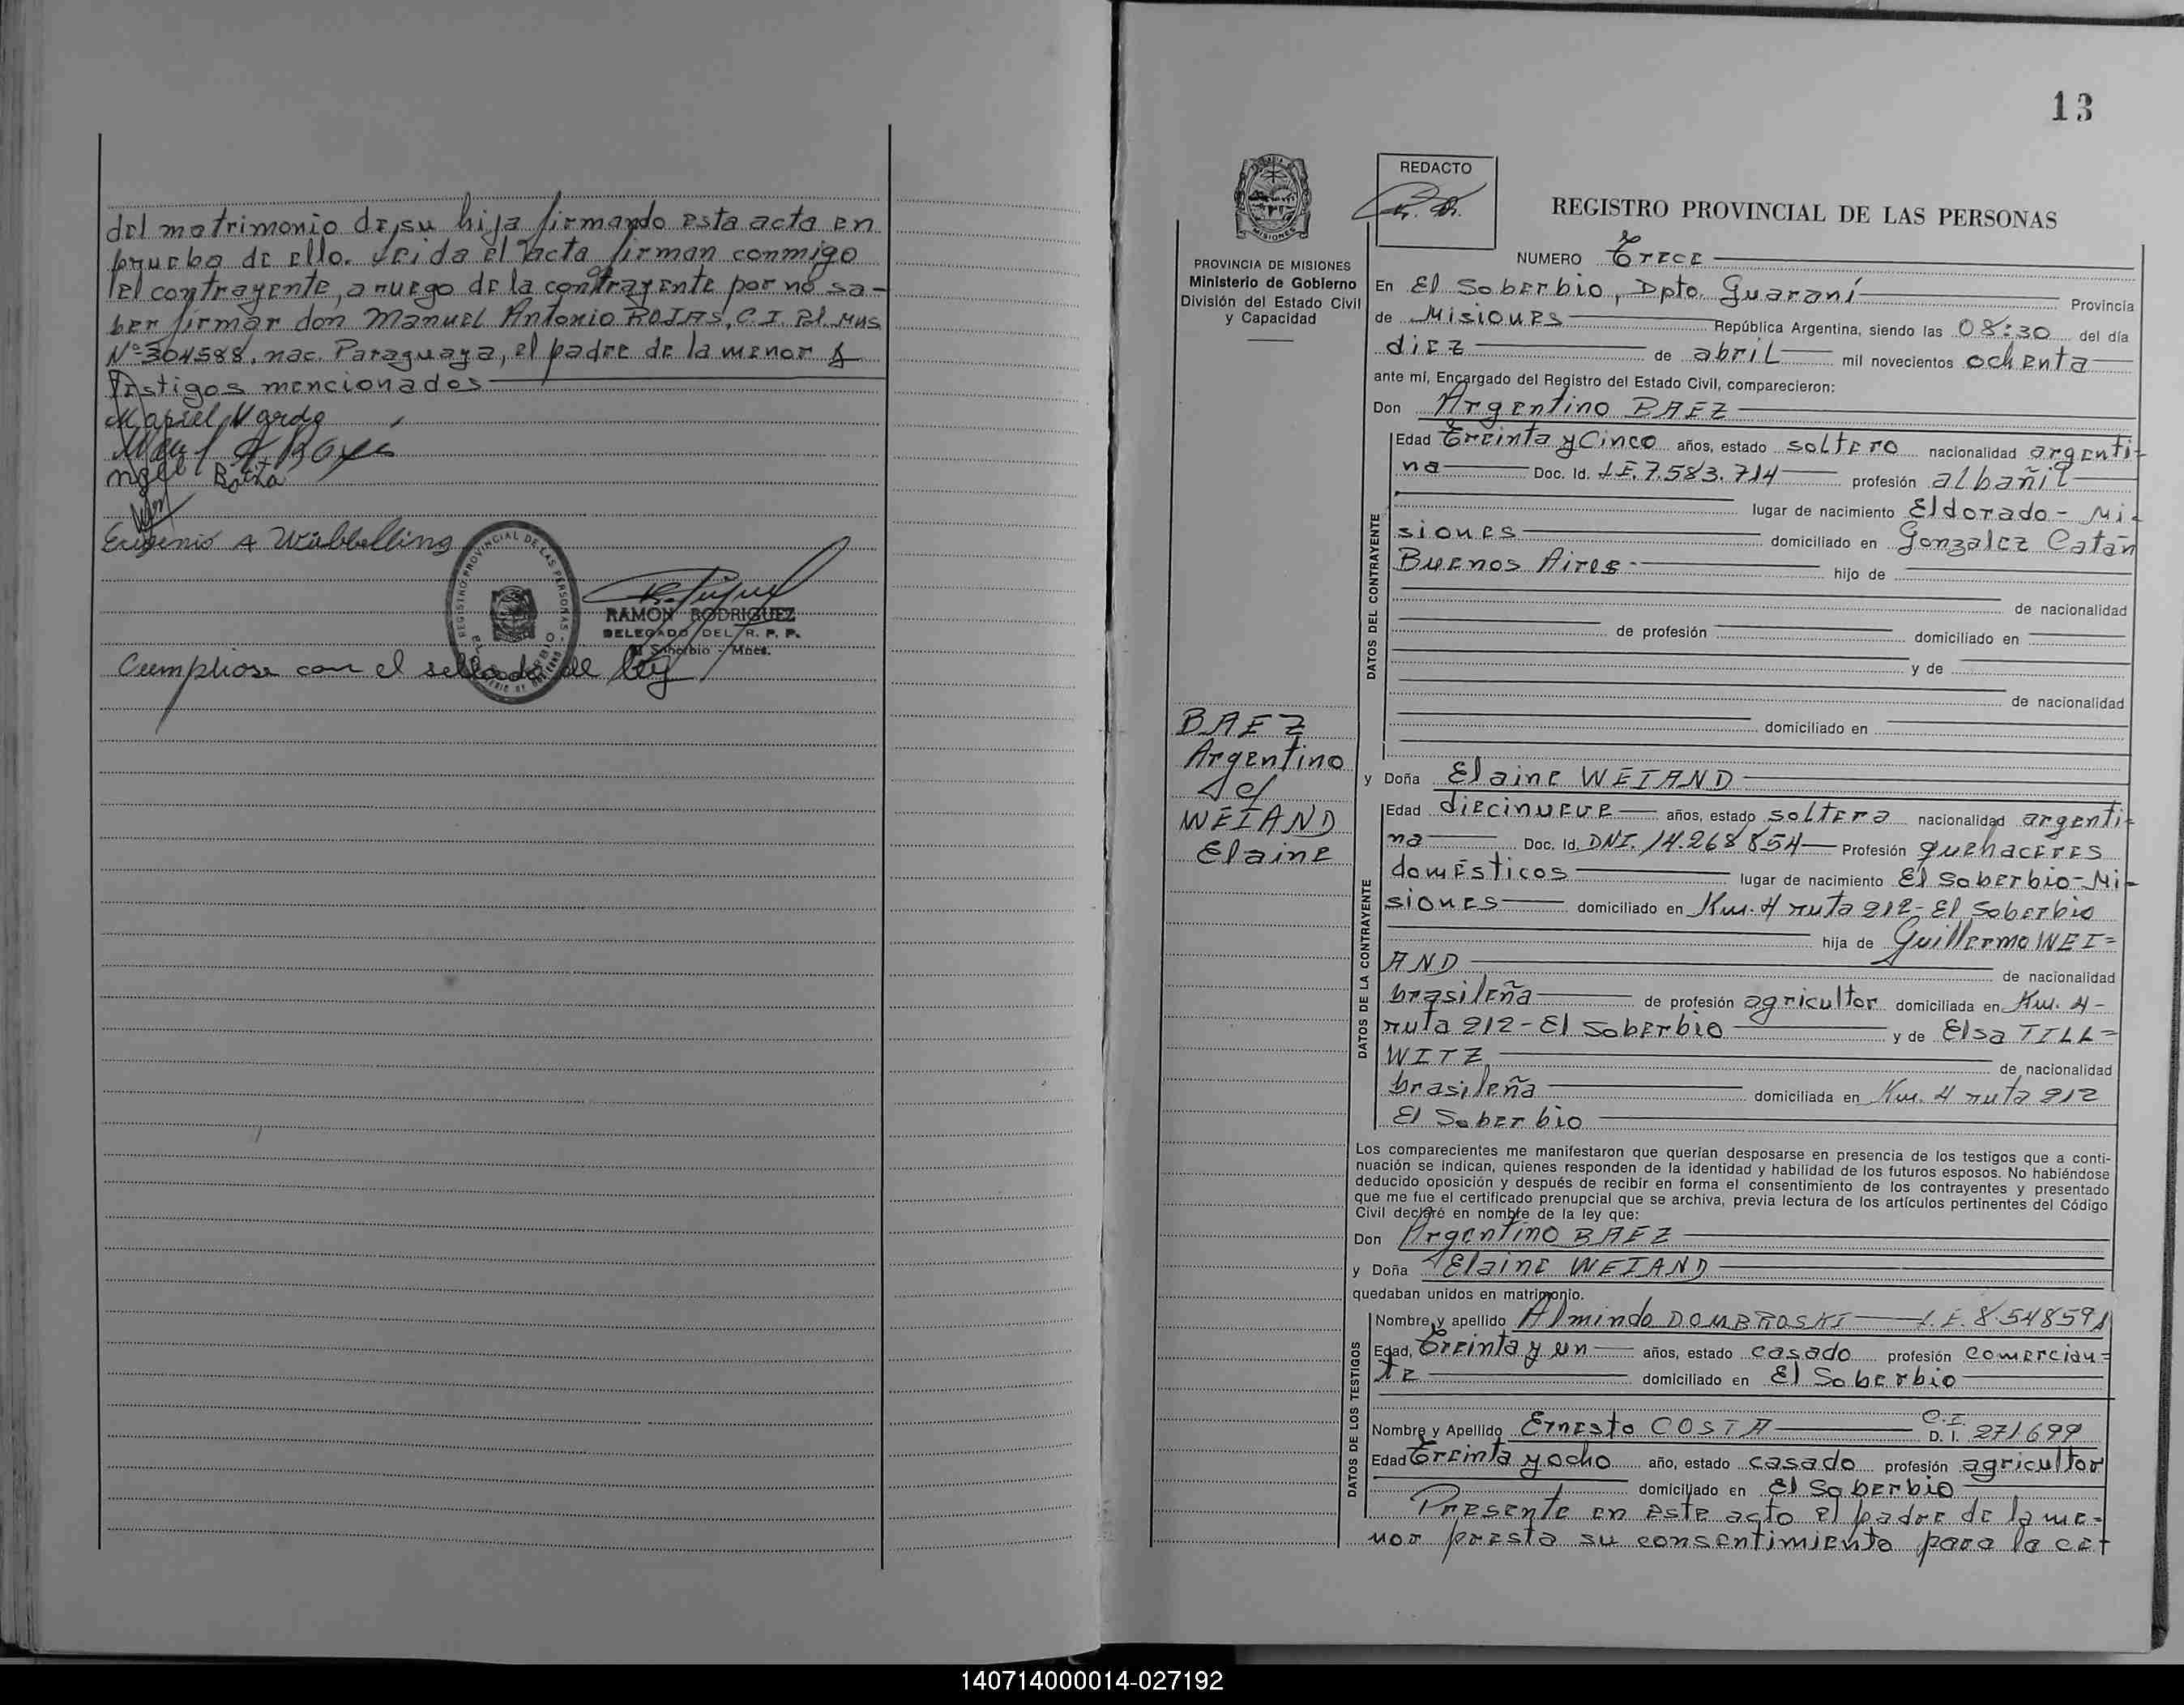 del matrimonio de su hija firmando esta acta en
prueba de ello. Leida el acta firman conmigo
el contrayente, a ruego de la contrayente por no sa-
ber firmar don Manuel Antonio ROJAS, C.I. Pol. Mns
Nº 304588, nac. Paraguaya, el padre de la menor y
testigos mencionados
Botha
Eugenio A Wubbelling
REGISTRO PROVINCIAL DE LAS PERSONAS
RAMON RODRIGUEZ
DELEGADO DEL R. P. P.
El Soberbio - Mnes.
Cumpliose con el sellado de ley
13
REDACTO
MISIONES
PROVINCIA DE MISIONES
Ministerio de Gobierno
División del Estado Civil
y Capacidad
REGISTRO PROVINCIAL DE LAS PERSONAS
NUMERO Trece
En El Soberbio, Dpto. Guaraní Provincia
de Misiones República Argentina, siendo las 08:30 del día
diez de abril mil novecientos ochenta
ante mí, Encargado del Registro del Estado Civil, comparecieron:
Don Argentino BAEZ
DATOS DEL CONTRAYENTE
Edad Treinta y Cinco años, estado soltero nacionalidad argenti-
na Doc. Id. L.E. 7.583.714 profesión albañil
lugar de nacimiento Eldorado - Mi-
siones domiciliado en Gonzalez Catán
Buenos Aires- hijo de
de nacionalidad
de profesión domiciliado en
y de
de nacionalidad
domiciliado en
BAEZ
Argentino
c/
WEIAND
Elaine
y Doña Elaine WEIAND
DATOS DE LA CONTRAYENTE
Edad diecinueve años, estado soltera nacionalidad argenti-
na Doc. Id. DNI. 14.268854 Profesión quehaceres
domésticos lugar de nacimiento El Soberbio-Mi-
siones domiciliado en Km. 4 ruta 212-El Soberbio
hija de Guillermo WEI=
AND de nacionalidad
brasileña de profesión agricultor domiciliada en Km. 4-
ruta 212-El Soberbio y de Elsa TILL=
WITZ de nacionalidad
brasileña domiciliada en Km. 4 ruta 212
El Soberbio
Los comparecientes me manifestaron que querían desposarse en presencia de los testigos que a conti-
nuación se indican, quienes responden de la identidad y habilidad de los futuros esposos. No habiéndose
deducido oposición y después de recibir en forma el consentimiento de los contrayentes y presentado
que me fue el certificado prenupcial que se archiva, previa lectura de los artículos pertinentes del Código
Civil declaré en nombre de la ley que:
Don Argentino BAEZ
y Doña Elaine WEIAND
quedaban unidos en matrimonio.
DATOS DE LOS TESTIGOS
Nombre y apellido Almindo DOMBROSKI L.E. 8.548591
Edad, Treinta y un años, estado casado profesión comercian=
te domiciliado en El Soberbio
Nombre y Apellido Ernesto COSTA C.I. D. I. 271.699
Edad Treinta y ocho año, estado casado profesión agricultor
domiciliado en El Soberbio
Presente en este acto el padre de la me-
nor presta su consentimiento para la ce+
140714000014-027192